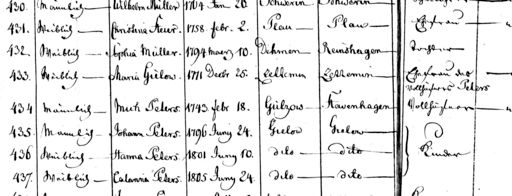 430. Männlich Wilhelm Müller 1764 Jan. 20. Schwerin Schwerin
431. Weiblich Christina 1758. febr. 2. Plau Plau Ehefrau
432. Weiblich Sophia Müller. 1794 maerz 10. Dehmen Reinshagen Tochter
433. Weiblich Maria Gielow. 1711 Decbr 25. Zettemin Zettemin Ehefrau des
Vollhüfners Peters
434 männlich Mich. Peters. 1743 febr 18. Gülzow Stavenhagen Vollhüfner
435. Männlich Johann Peters. 1796 Juny 24. Gielow Gielow
436 Weiblich Hanna Peters. 1801 Juny 10. dito dito Kinder
437. Weiblich Catarina Peters. 1805 Juny 24 dito dito